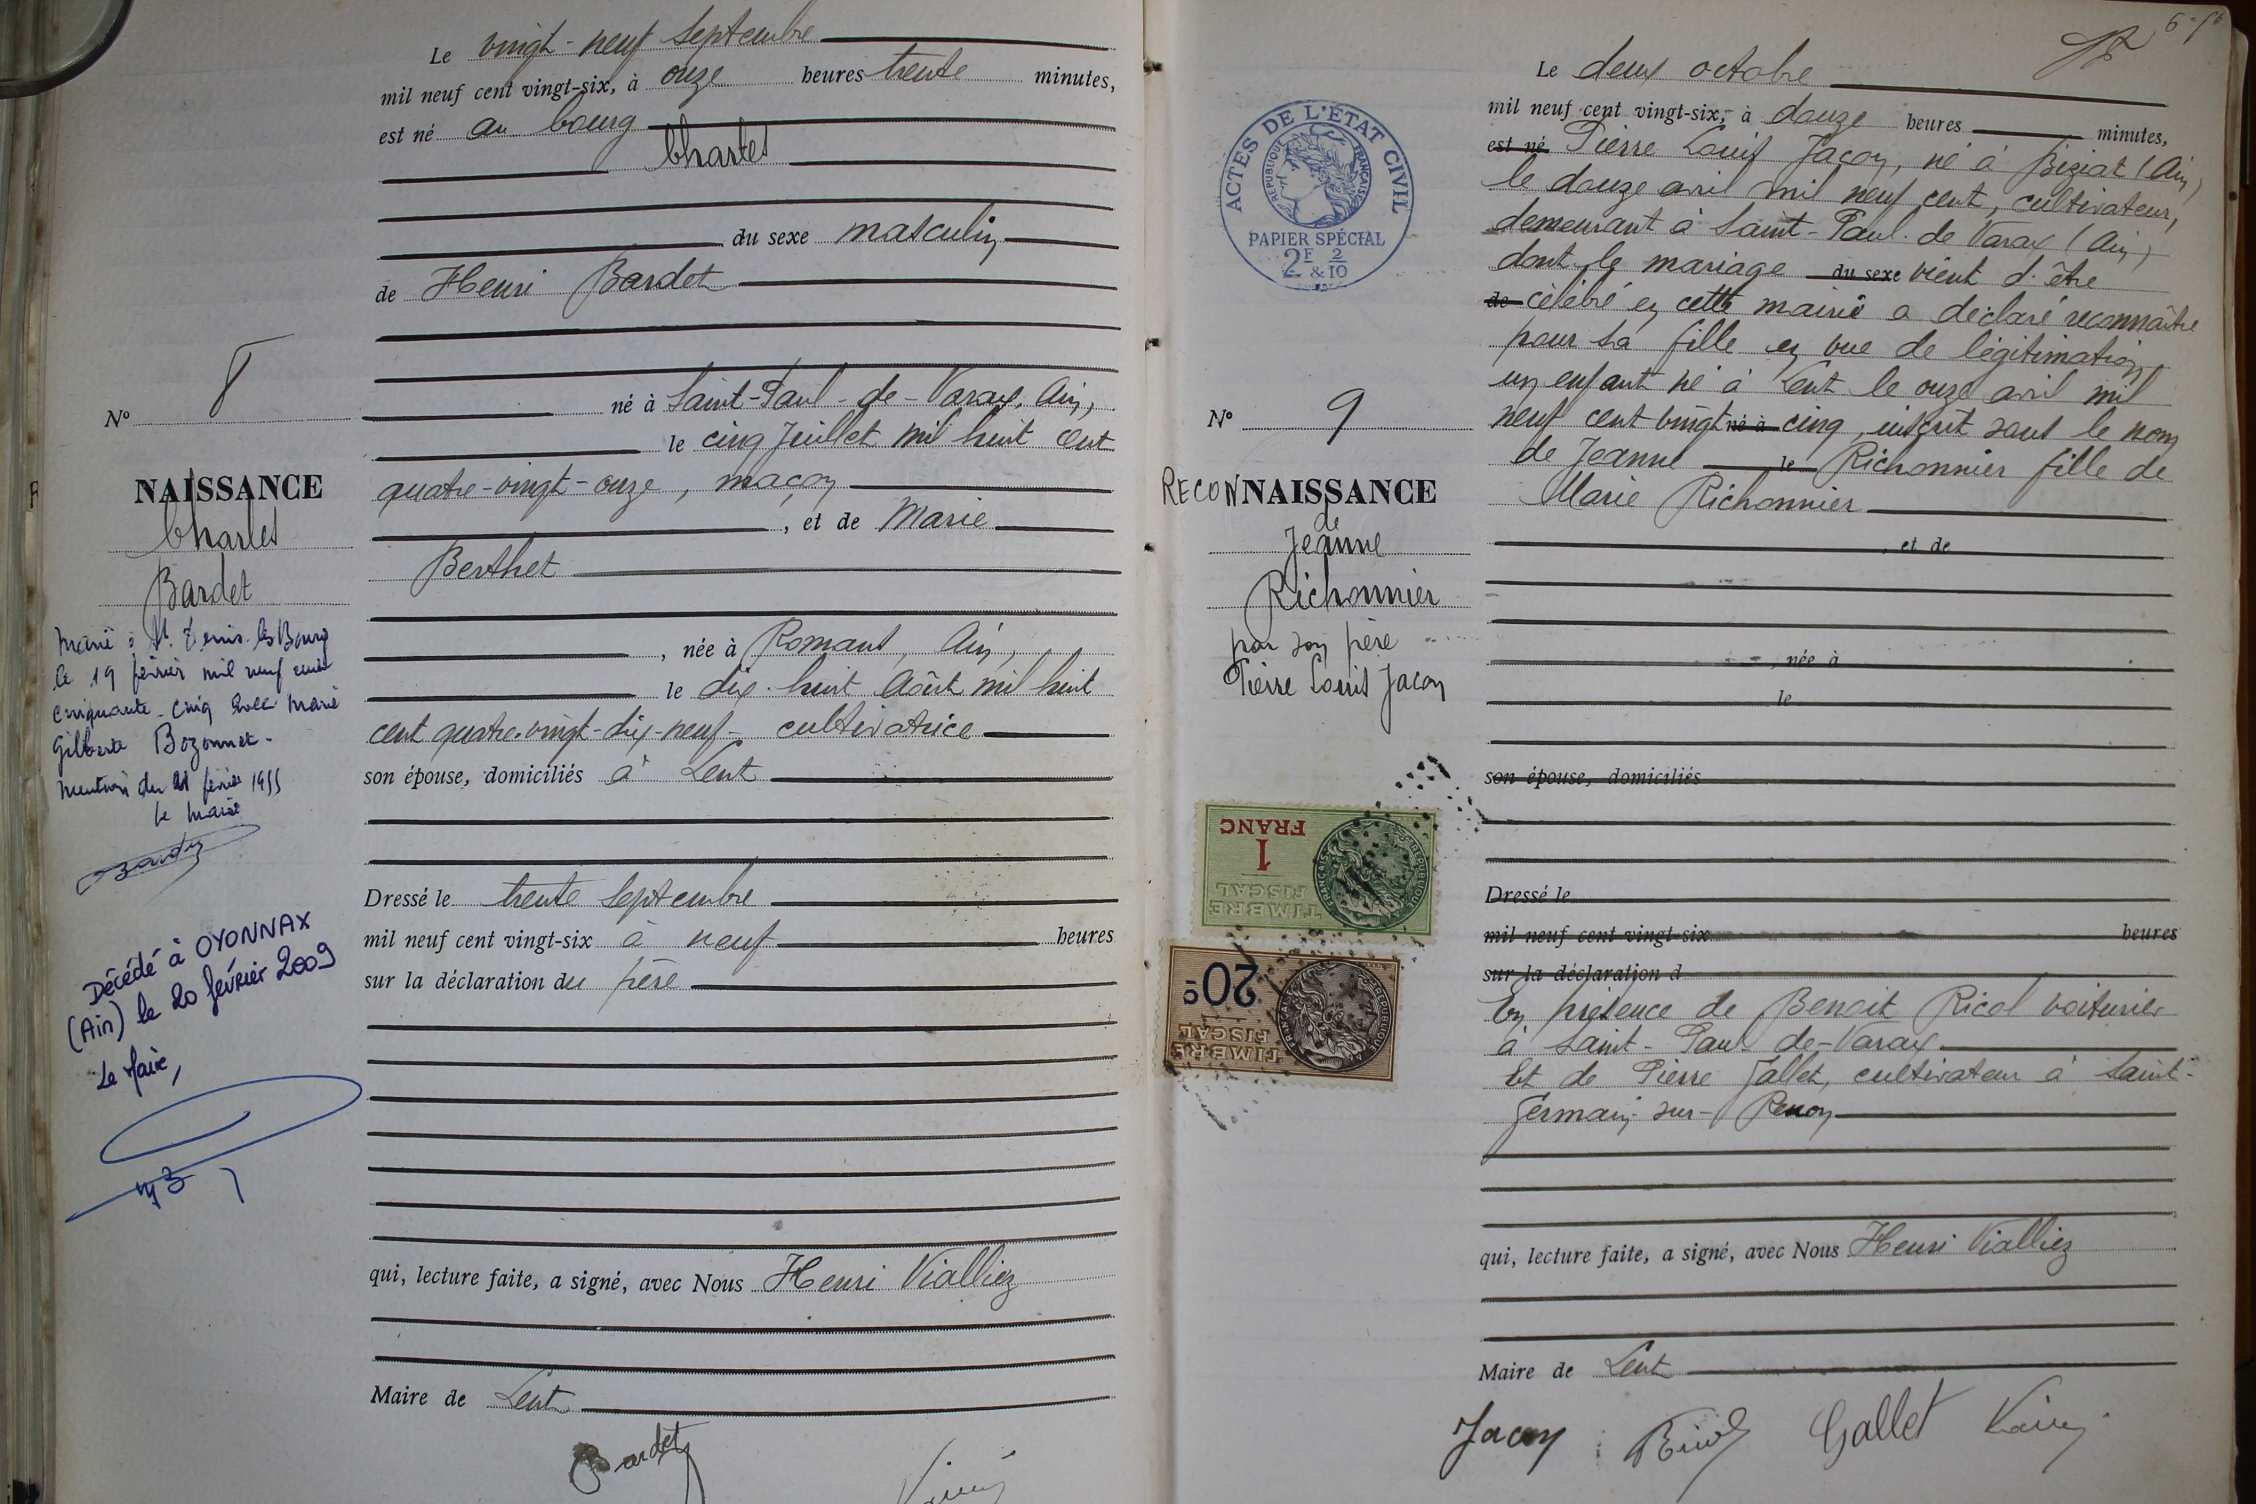 Le vingt-neuf septembre
mil neuf cent vingt-six, à onze heures trente minutes,
est né au bourg
Charles
du sexe masculin
de Henri Bardet
né à Saint-Paul-de-Varax, Ain,
le cinq Juillet mil huit cent
quatre-vingt-onze, maçon
, et de Marie
Berthet
, née à Romans, Ain,
le dix-huit Août mil huit
cent quatre-vingt-dix-neuf - cultivatrice
son épouse, domiciliés à Lent
Dressé le trente septembre
mil neuf cent vingt-six à neuf heures
sur la déclaration du père
qui, lecture faite, a signé, avec Nous Henri Vialliez
Maire de Lent
Bardet
N° 8
NAISSANCE
Charles
Bardet
Marié à St Denis-les-Bourg
le 19 février mil neuf cent
cinquante-cinq avec Marie
Gilberte Bozonnet-
Mention du 21 février 1955
le Maire
Décédé à OYONNAX
(Ain) le 20 février 2009
Le Maire,
ACTES DE L'ÉTAT CIVIL
RÉPUBLIQUE FRANÇAISE
PAPIER SPÉCIAL
2F 2
& 10
N° 9
RECONNAISSANCE
de
Jeanne
Richonnier
par son père
Pierre Louis Jacon
1
FRANC
TIMBRE
FISCAL
RÉPUBLIQUE FRANÇAISE
20c
TIMBRE
FISCAL
RÉPUBLIQUE FRANÇAISE
Le deux octobre
mil neuf cent vingt-six, à douze heures minutes,
est né Pierre Louis Jacon, né à Biziat (Ain)
le douze avril mil neuf cent, cultivateur,
demeurant à Saint-Paul-de-Varax (Ain)
dont le mariage du sexe vient d'être
de célébré en cette mairie a déclaré reconnaître
pour sa fille en vue de légitimation
un enfant né à Lent le onze avril mil
neuf cent vingt né à cinq, inscrit sous le nom
de Jeanne le Richonnier fille de
Marie Richonnier
, et de
, née à
le
son épouse, domiciliés
Dressé le
mil neuf cent vingt-six heures
sur la déclaration d
En présence de Benoit Ricol voiturier
à Saint-Paul-de-Varax
Et de Pierre Gallet, cultivateur à Saint-
Germain-sur-Renon
qui, lecture faite, a signé, avec Nous Henri Vialliez
Maire de Lent
Jacon Ricol Gallet